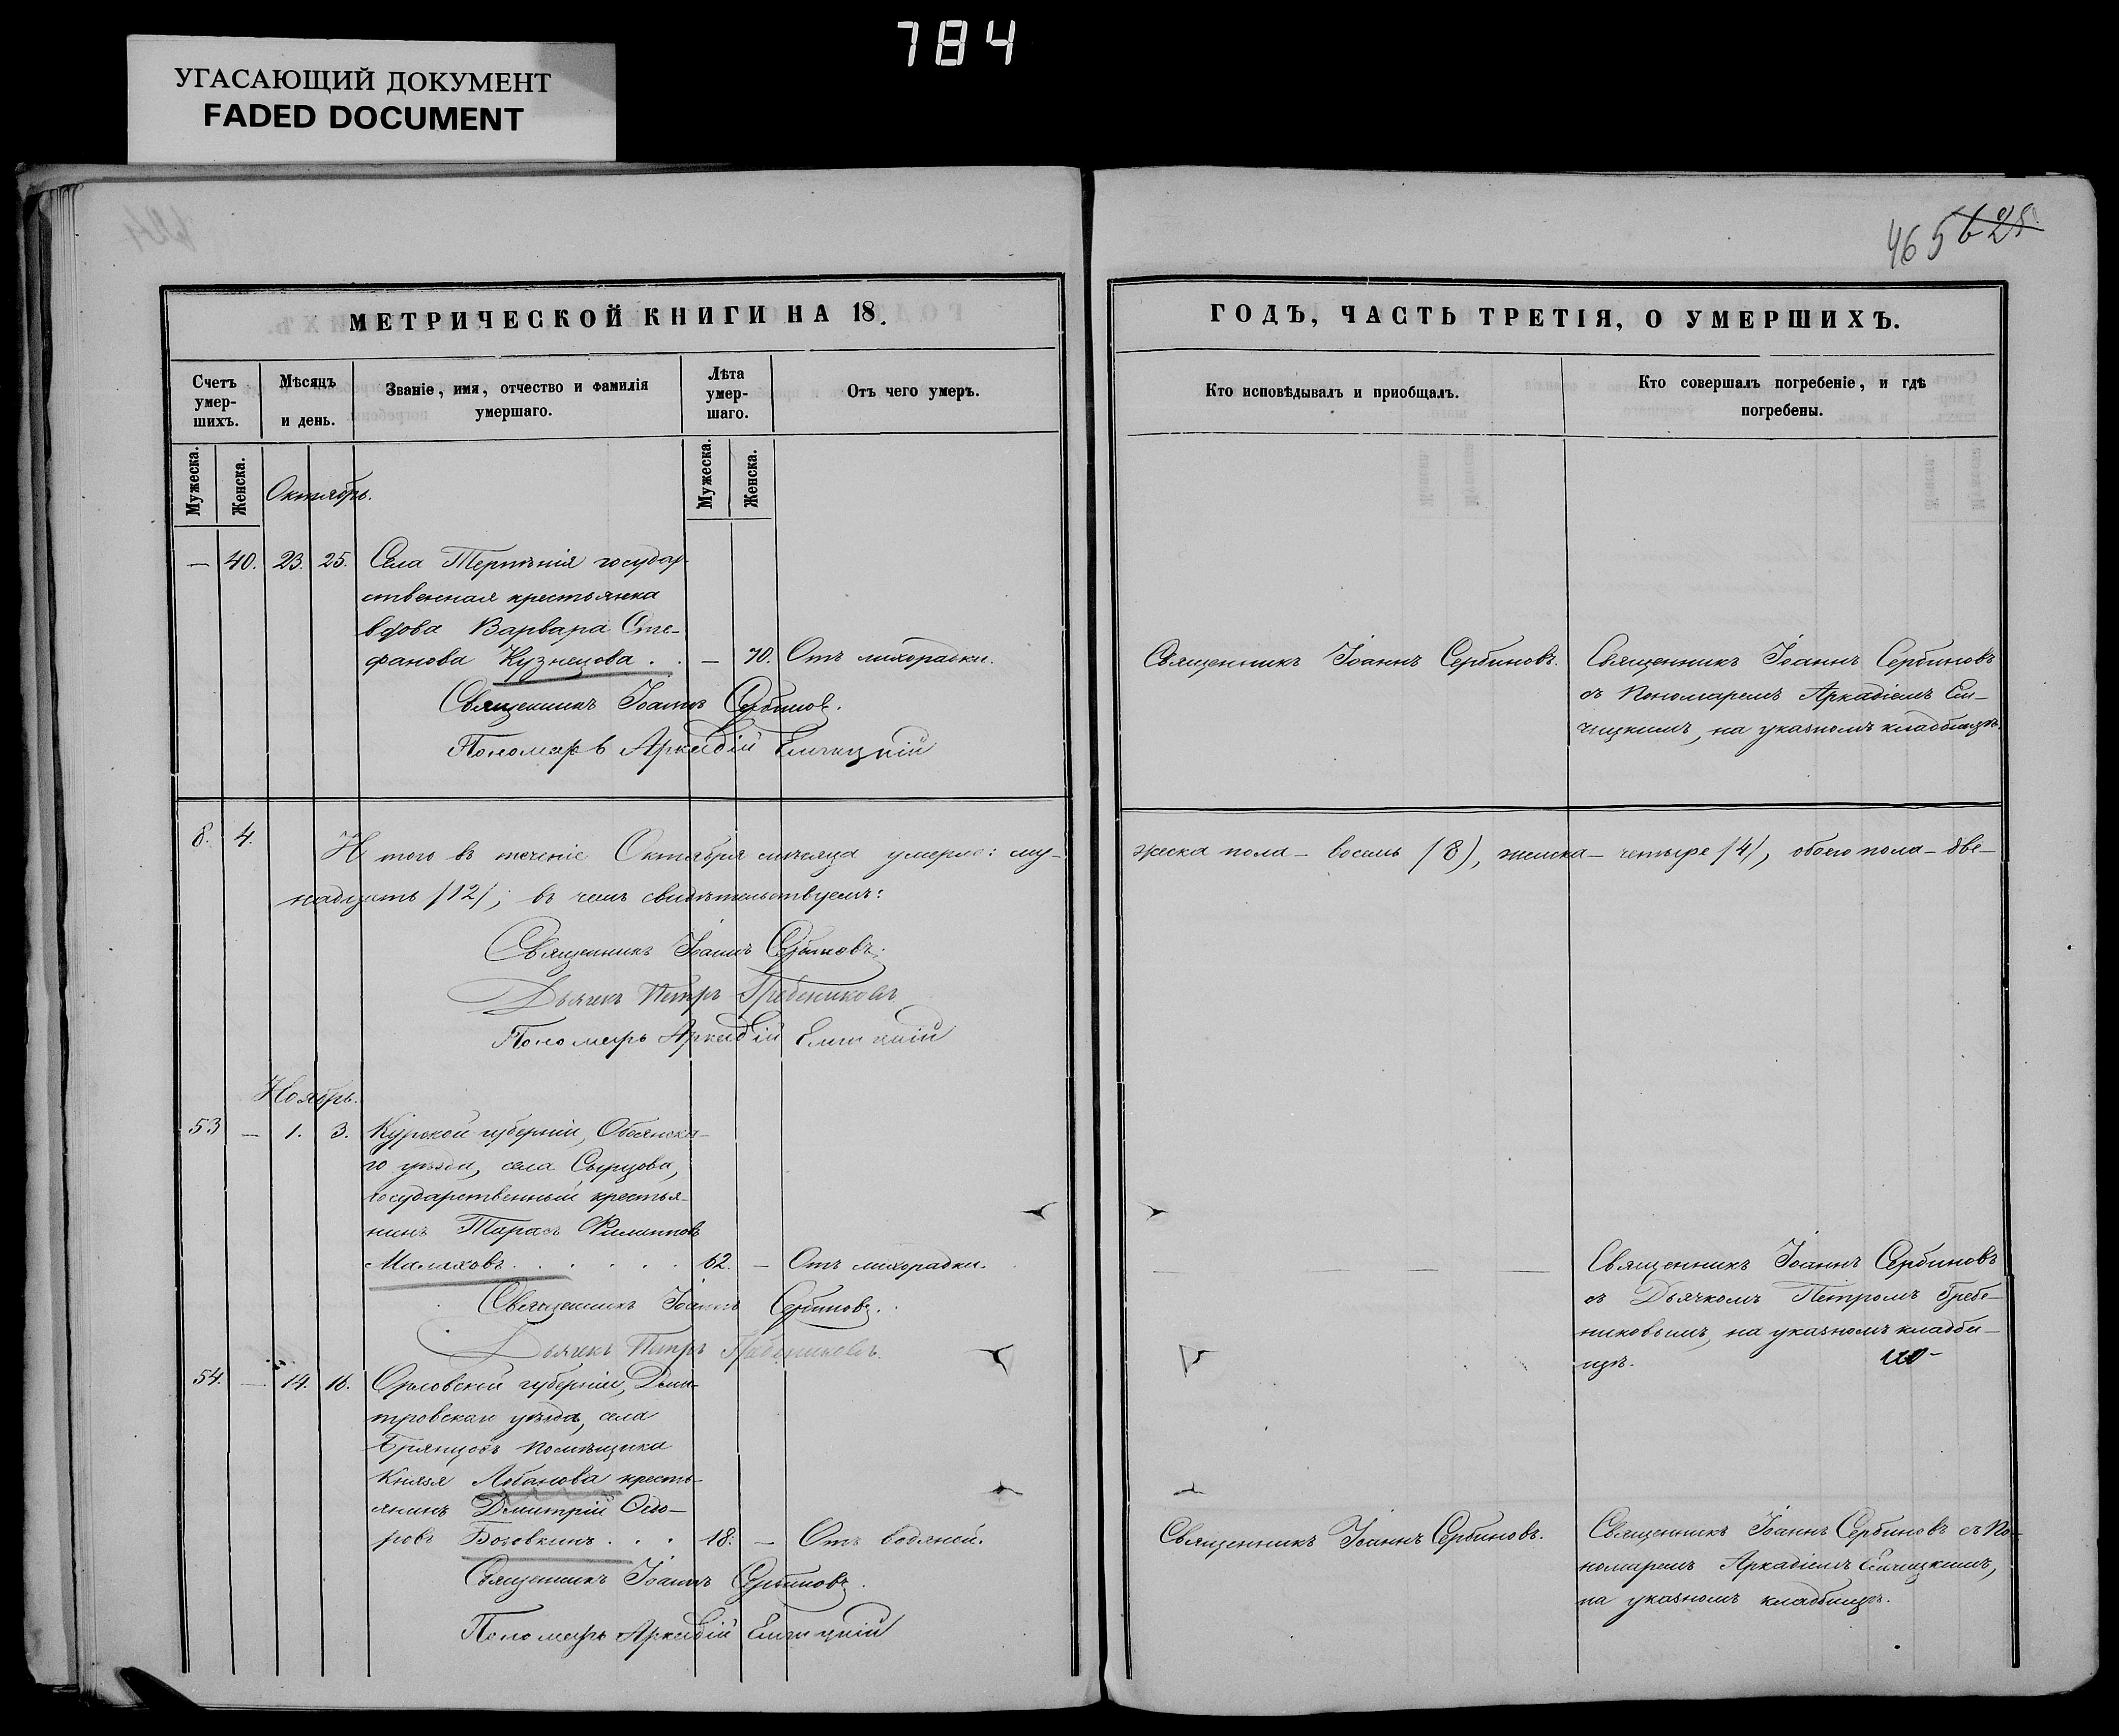 784
УГАСАЮЩИЙ ДОКУМЕНТ
FADED DOCUMENT
465 625
МЕТРИЧЕСКОЙ КНИГИ НА 18 .
Счетъ умер-шихъ.
Мѣсяцъ и день.
Званіе, имя, отчество и фамилія умершаго.
Лѣта умер-шаго.
Отъ чего умеръ.
Мужеска. Женска.
Мужеска. Женска.
Октябрь.
— 40. 23. 25. Села Терпѣнія государ-
ственная крестьянка
вдова Варвара Сте-
фанова Кузнецова . . — 70. Отъ лихорадки.
Священникъ Іоаннъ Сербиновъ.
Пономарь Аркадій
8. 4. Итого въ теченіе Октября мѣсяца умерло: му-
надцать (12); въ чемъ свидѣтельствуемъ:
Священникъ Іоаннъ Сербиновъ.
Дьячекъ Петръ Гребениковъ
Пономарь Аркадій
Ноябрь.
53 — 1. 3. Курской губерніи, Обоянска-
го уѣзда, села Сырцова,
государственный крестья-
нинъ Тарасъ Филипповъ
Малаховъ . . . . . 62. — Отъ лихорадки.
Священникъ Іоаннъ Сербиновъ.
Дьячекъ Петръ Гребениковъ.
54. — 14. 16. Орловской губерніи, Дми-
тровскаго уѣзда, села
Брянцовъ помѣщика
Князя Лобанова кресть-
янинъ Дмитрій Ѳедо-
ровъ . . . 18. — Отъ водяной.
Священникъ Іоаннъ Сербиновъ.
Пономарь Аркадій
ГОДЪ, ЧАСТЬ ТРЕТІЯ, О УМЕРШИХЪ.
Кто исповѣдывалъ и пріобщалъ.
Кто совершалъ погребеніе, и гдѣ погребены.
Священникъ Іоаннъ Сербиновъ.
Священникъ Іоаннъ Сербиновъ
съ Пономаремъ Аркадіемъ
на указномъ кладбищѣ.
жеска пола — восемь (8), женска — четыре (4), обоего пола — две-
Священникъ Іоаннъ Сербиновъ
съ Дьячкомъ Петромъ Гребе-
никовымъ, на указномъ кладби-
щѣ.
Священникъ Іоаннъ Сербиновъ.
Священникъ Іоаннъ Сербиновъ съ По-
номаремъ Аркадіемъ
на указномъ кладбищѣ.